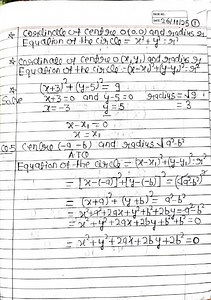 26/11/25 ①
* Coordinate of centre O(0,0) and radius r
Equation of the circle = x²+y²=r²
* Coordinate of centre O(x₁,y₁) and radius r
Equation of the circle = (x-x₁)²+(y-y₁)²=r²
(x+3)²+(y-5)² = 9
Solve x+3=0 and y-5=0 radius=√9
x=-3 y=5 =3
x-x₁=0
x=x₁
Q.5 Centre (-a,-b) and radius √a²-b²
ATQ
Equation of the circle = (x-x₁)²+(y-y₁)²=r²
= [x-(-a)]²+[y-(-b)]² = (√a²-b²)²
= (x+a)²+(y+b)² = a²-b²
= x²+a²+2ax+y²+b²+2by=a²-b²
= x²+y²+2ax+2by+b²+b²=0
= x²+y²+2ax+2by+2b²=0